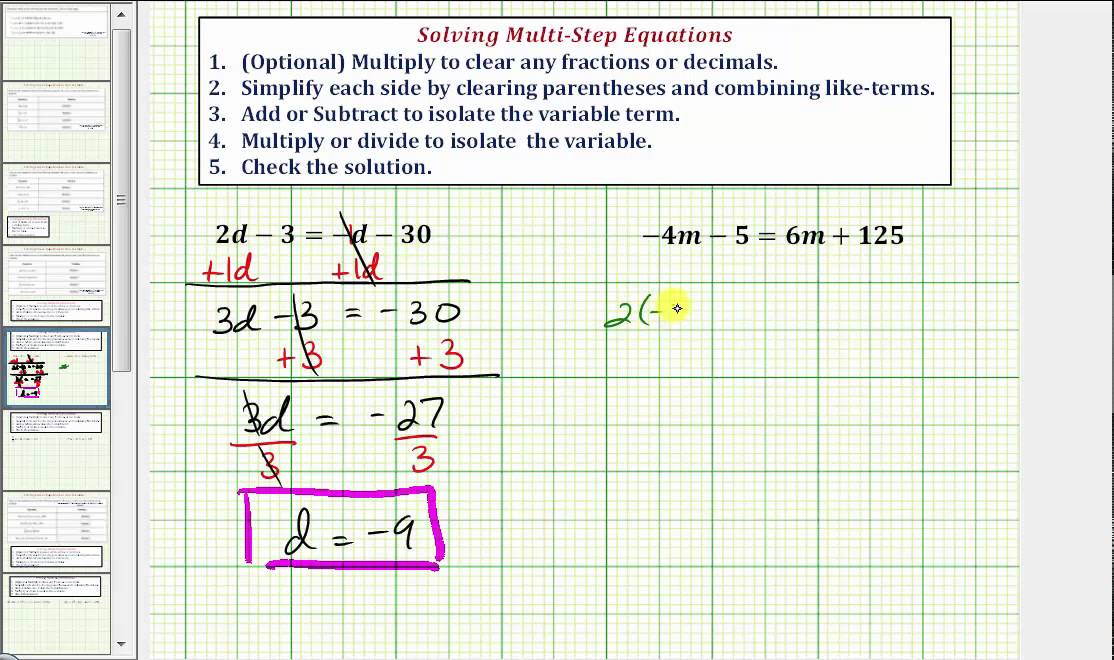 Solving Multi-Step Equations
1. (Optional) Multiply to clear any fractions or decimals.
2. Simplify each side by clearing parentheses and combining like-terms.
3. Add or Subtract to isolate the variable term.
4. Multiply or divide to isolate the variable.
5. Check the solution.
2d − 3 = −d − 30
+1d +1d
3d − 3 = -30
+3 +3
3d = -27
3 3
d = -9
−4m − 5 = 6m + 125
2(-